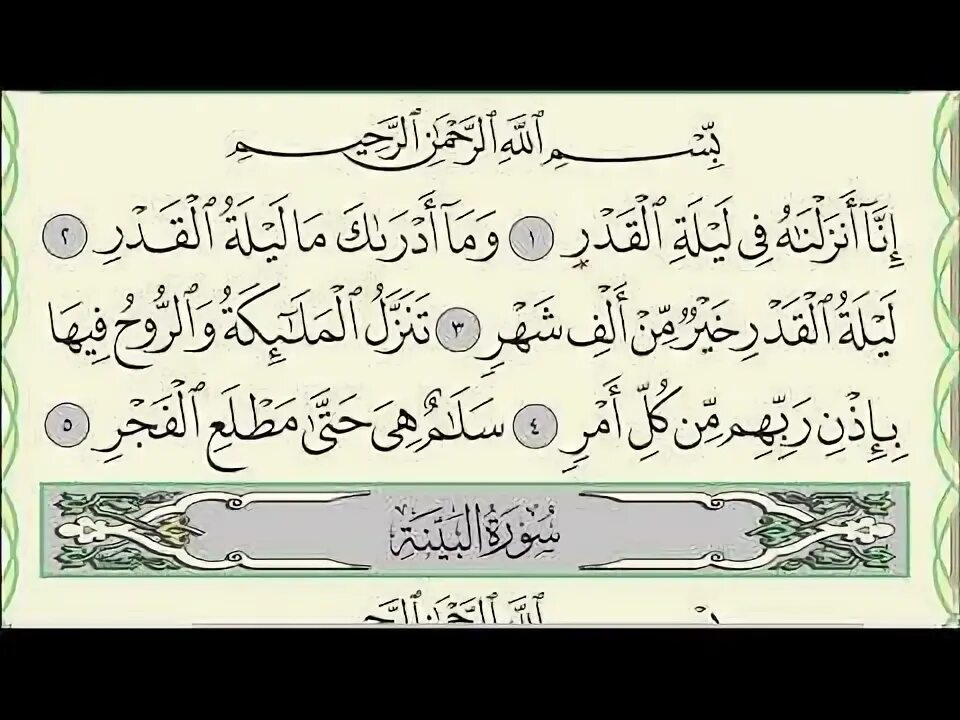 بِّسْمِ ٱللَّهِ ٱلرَّحْمَٰنِ ٱلرَّحِيمِ
إِنَّآ أَنزَلْنَٰهُ فِى لَيْلَةِ ٱلْقَدْرِ ١ وَمَآ أَدْرَىٰكَ مَا لَيْلَةُ ٱلْقَدْرِ ٢
لَيْلَةُ ٱلْقَدْرِ خَيْرٌ مِّنْ أَلْفِ شَهْرٍ ٣ تَنَزَّلُ ٱلْمَلَٰٓئِكَةُ وَٱلرُّوحُ فِيهَا
بِإِذْنِ رَبِّهِم مِّن كُلِّ أَمْرٍ ٤ سَلَٰمٌ هِىَ حَتَّىٰ مَطْلَعِ ٱلْفَجْرِ ٥
سُورَةُ البَيِّنَةِ